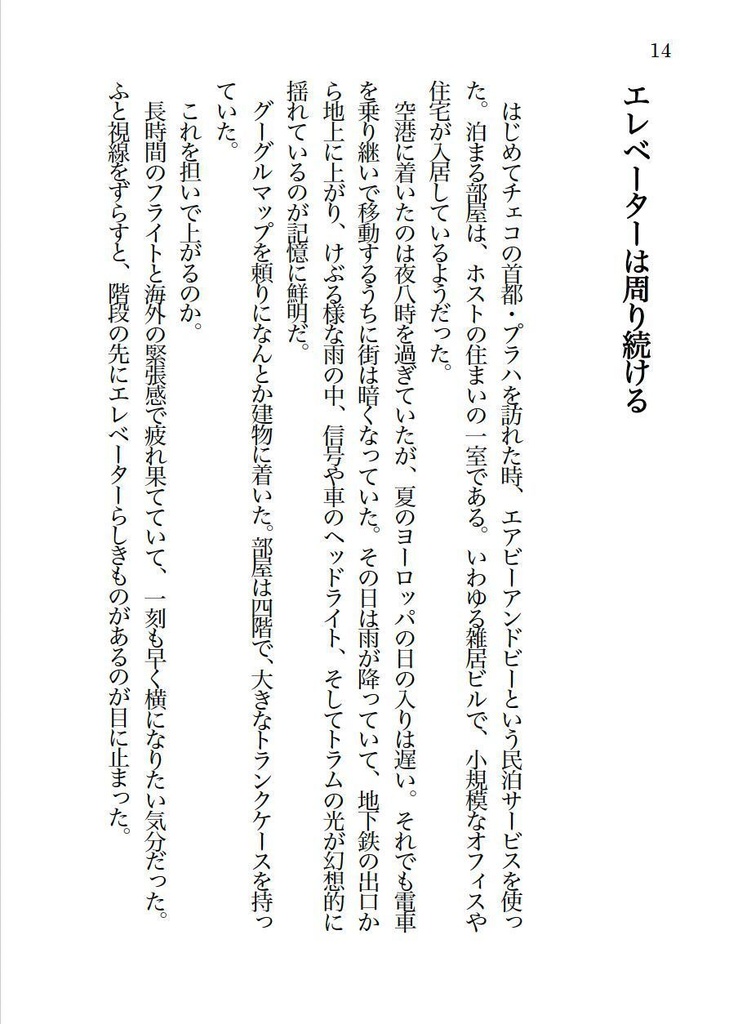 14
エレベーターは周り続ける
はじめてチェコの首都・プラハを訪れた時、エアビーアンドビーという民泊サービスを使っ
た。泊まる部屋は、ホストの住まいの一室である。いわゆる雑居ビルで、小規模なオフィスや
住宅が入居しているようだった。
空港に着いたのは夜八時を過ぎていたが、夏のヨーロッパの日の入りは遅い。それでも電車
を乗り継いで移動するうちに街は暗くなっていた。その日は雨が降っていて、地下鉄の出口か
ら地上に上がり、けぶる様な雨の中、信号や車のヘッドライト、そしてトラムの光が幻想的に
揺れているのが記憶に鮮明だ。
グーグルマップを頼りになんとか建物に着いた。部屋は四階で、大きなトランクケースを持っ
ていた。
これを担いで上がるのか。
長時間のフライトと海外の緊張感で疲れ果てていて、一刻も早く横になりたい気分だった。
ふと視線をずらすと、階段の先にエレベーターらしきものがあるのが目に止まった。